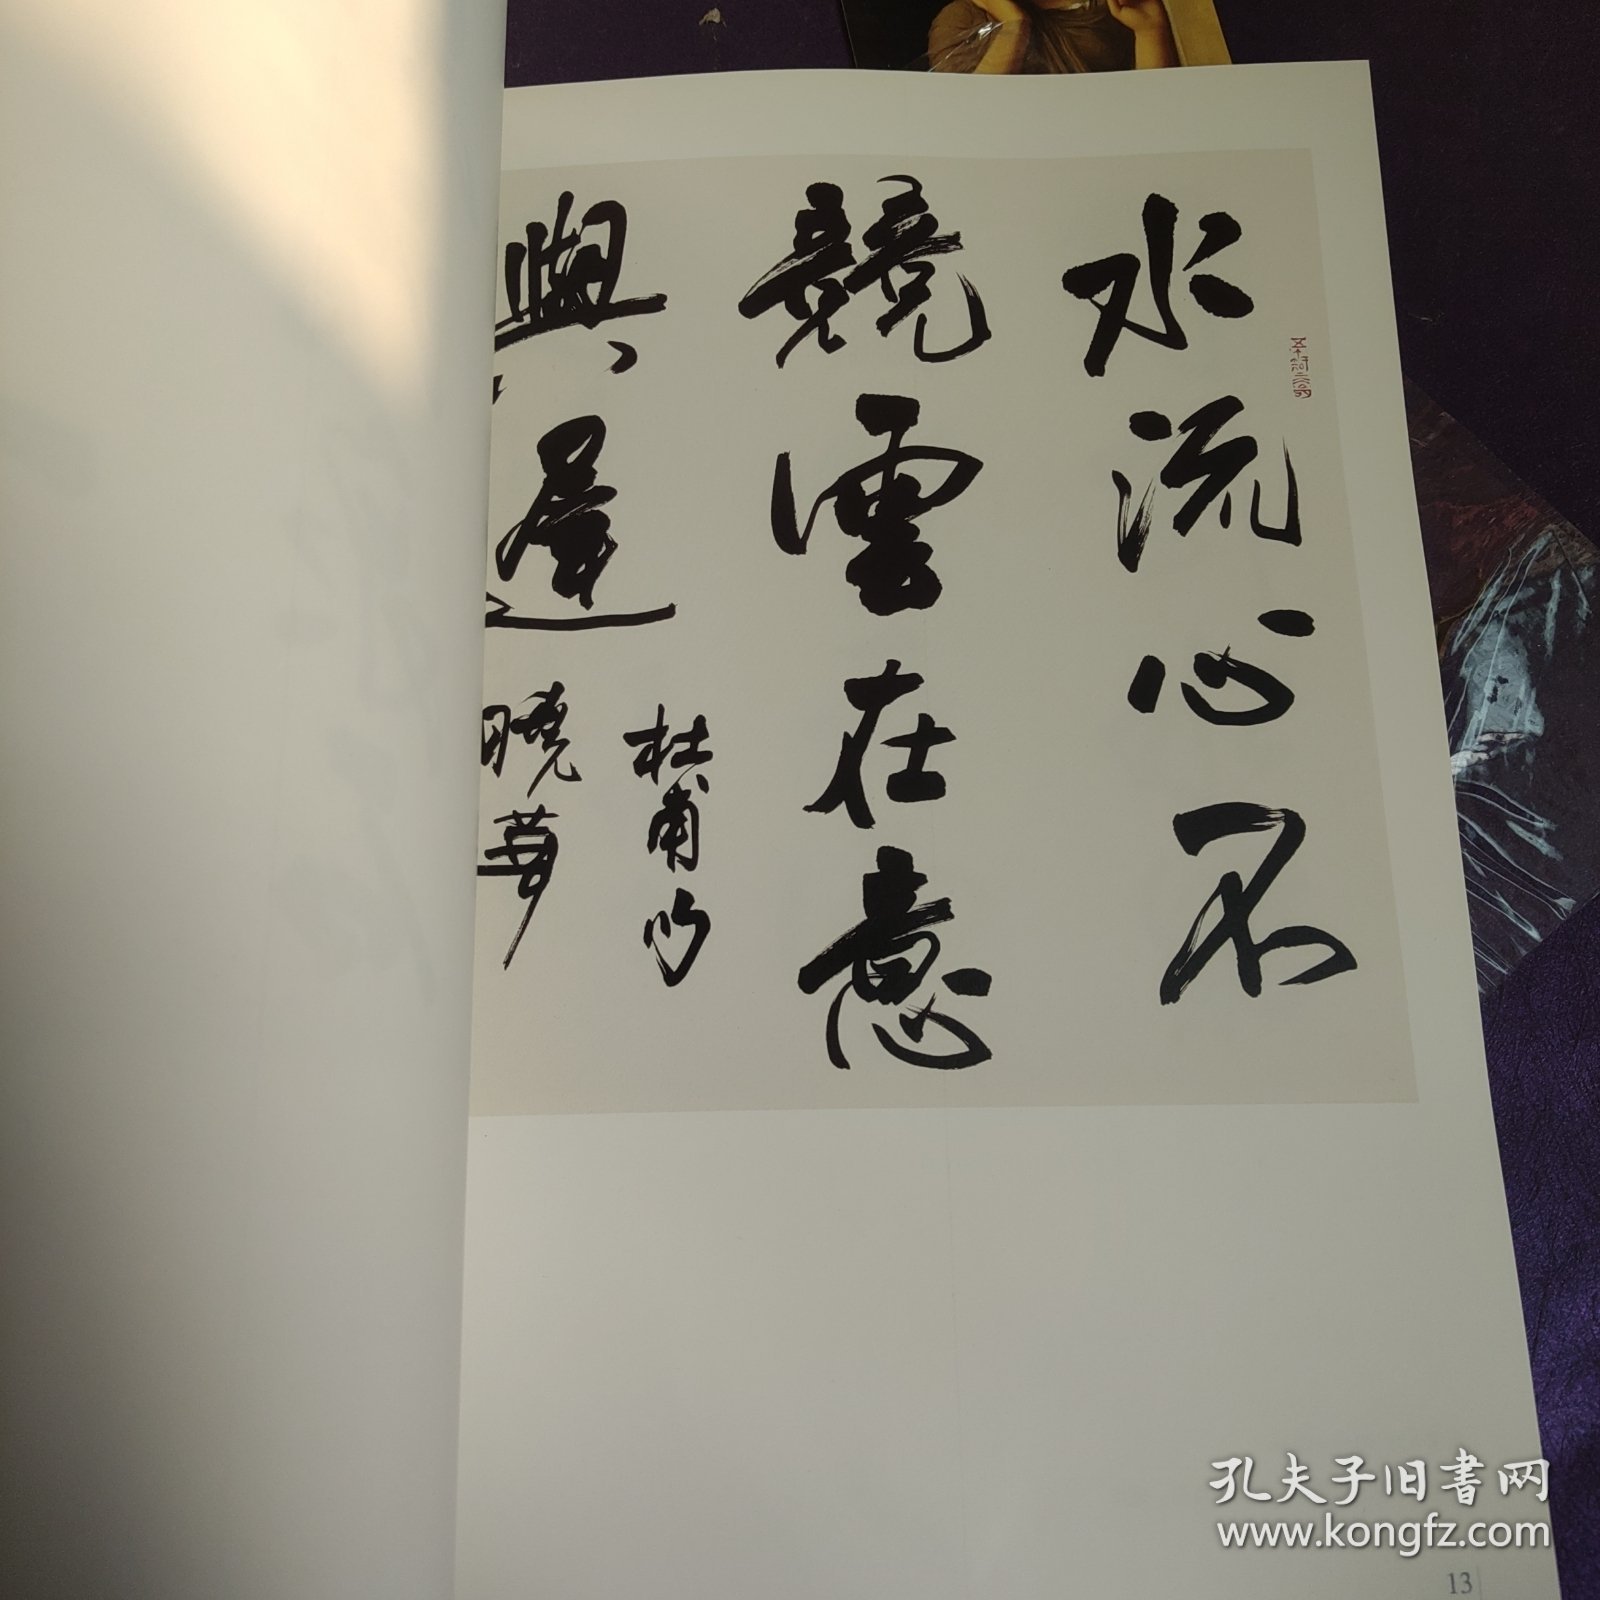 水流心不
競雲在意
與遲
杜甫句
曉華
孔夫子旧书网
www.kongfz.com
13